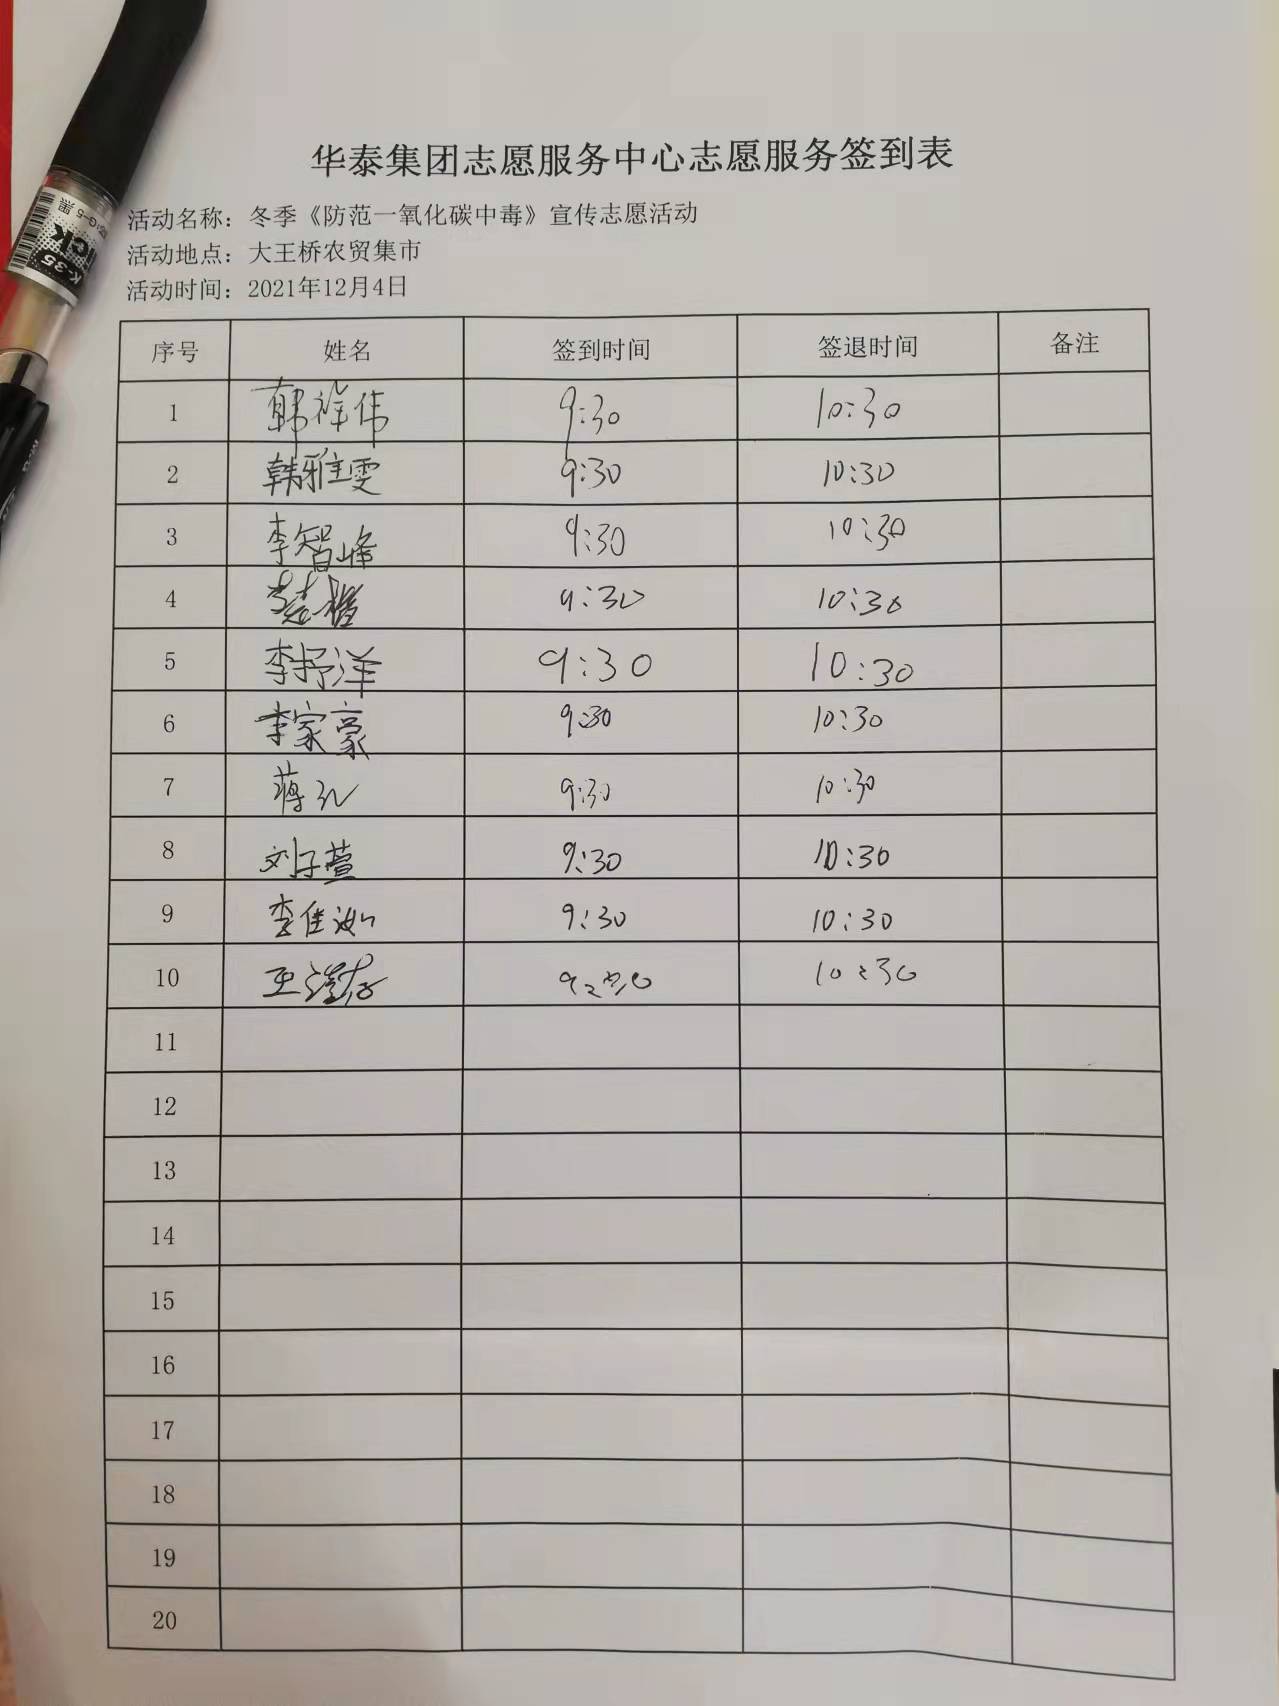 华泰集团志愿服务中心志愿服务签到表
活动名称：冬季《防范一氧化碳中毒》宣传志愿活动
活动地点：大王桥农贸集市
活动时间：2021年12月4日
序号 姓名 签到时间 签退时间 备注
1 韩祥伟 9:30 10:30
2 韩雅雯 9:30 10:30
3 李智峰 9:30 10:30
4 9:30 10:30
5 李抒洋 9:30 10:30
6 李家豪 9:30 10:30
7 蒋 9:30 10:30
8 刘子萱 9:30 10:30
9 李佳汝 9:30 10:30
10 王 9:30 10:30
11
12
13
14
15
16
17
18
19
20
K-35